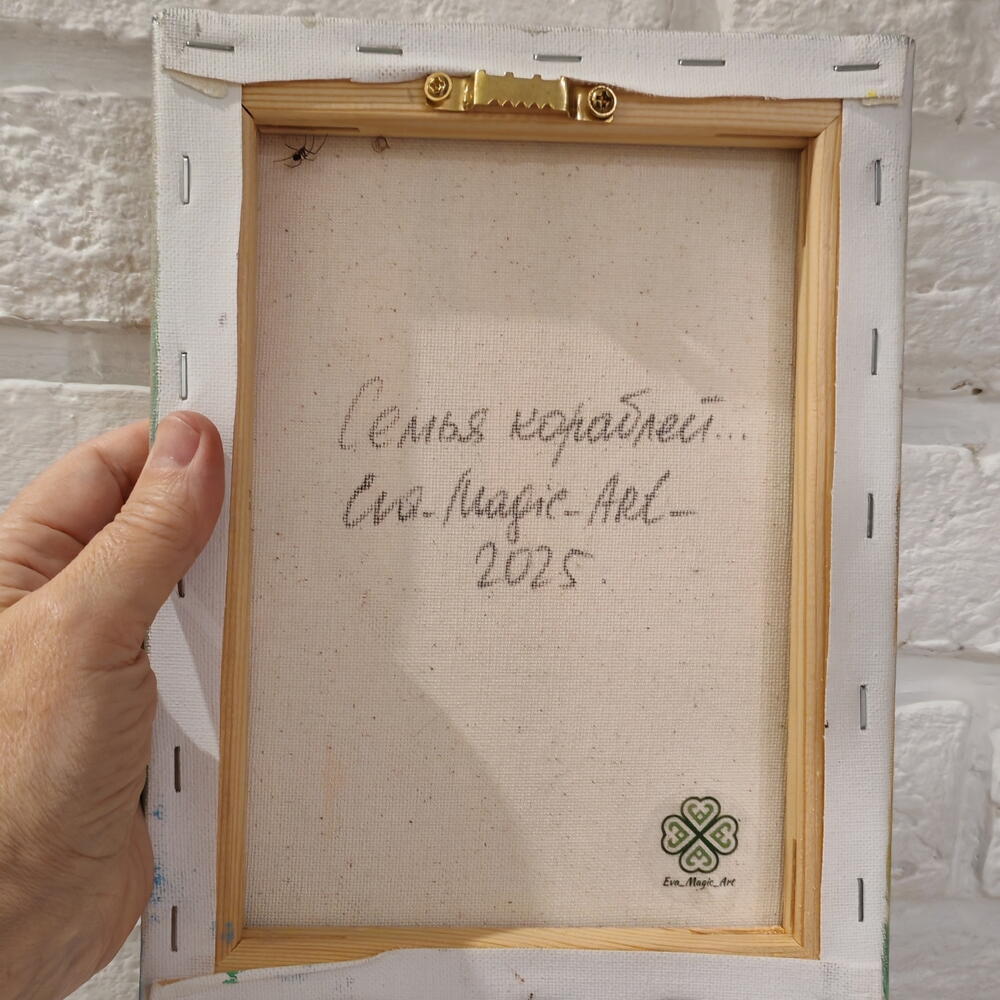 Семья кораблей...
Eva_Magic_Art_
2025
Eva_Magic_Art